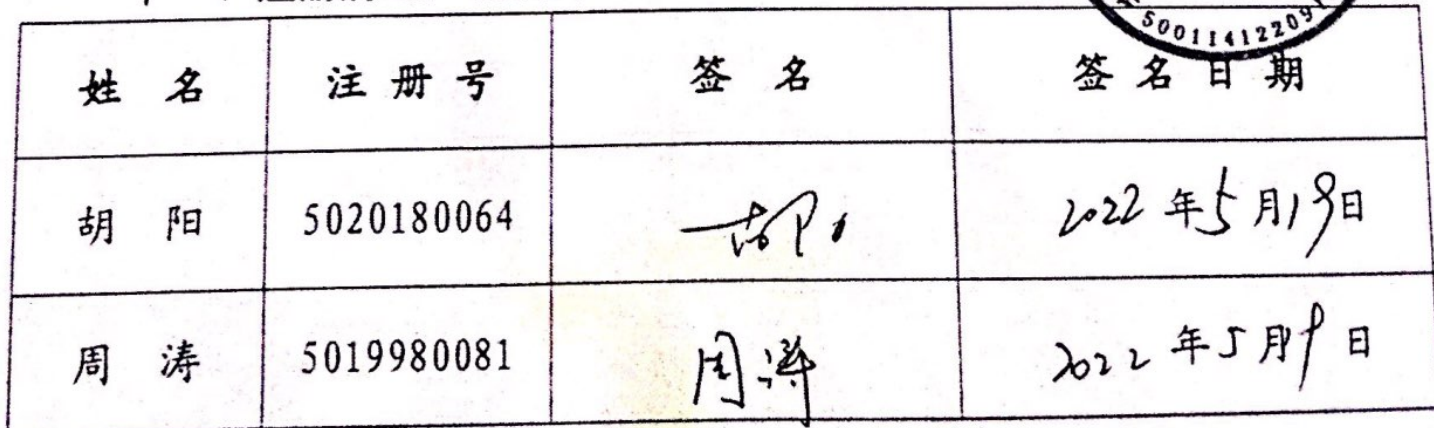 5001141122091
姓 名 注 册 号 签 名 签 名 日 期
胡 阳 5020180064 2022 年 5 月 19 日
周 涛 5019980081 周涛 2022 年 5 月 19 日